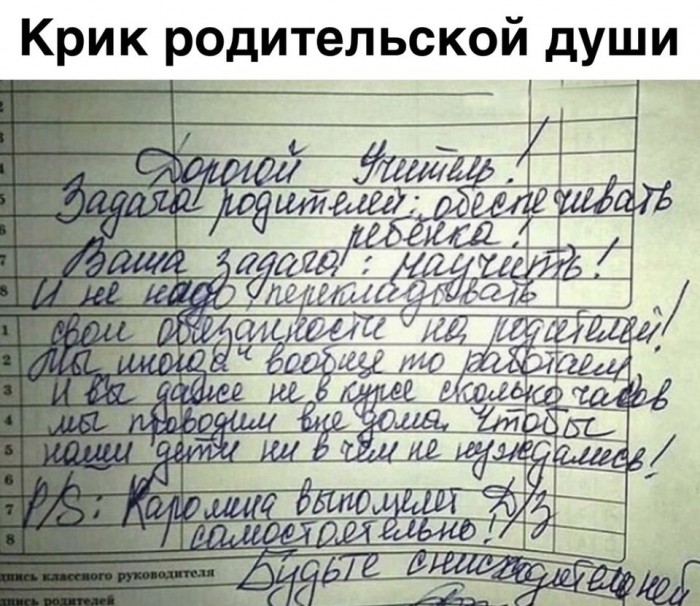 Крик родительской души
Дорогой Учитель!
Задача родителей: обеспечивать
ребёнка!
Ваша задача: научить!
И не надо перекладывать
свои обязанности на родителей!
Мы иногда вообще то работаем,
И вы даже не в курсе сколько часов
мы проводим вне дома, Чтобы
наши дети ни в чём не нуждались!
P/S: Каролина выполняет Д/З
самостоятельно!
Будьте снисходительней
дпись классного руководителя
пись родителей
2
3
4
5
6
7
8
1
2
3
4
5
6
7
8